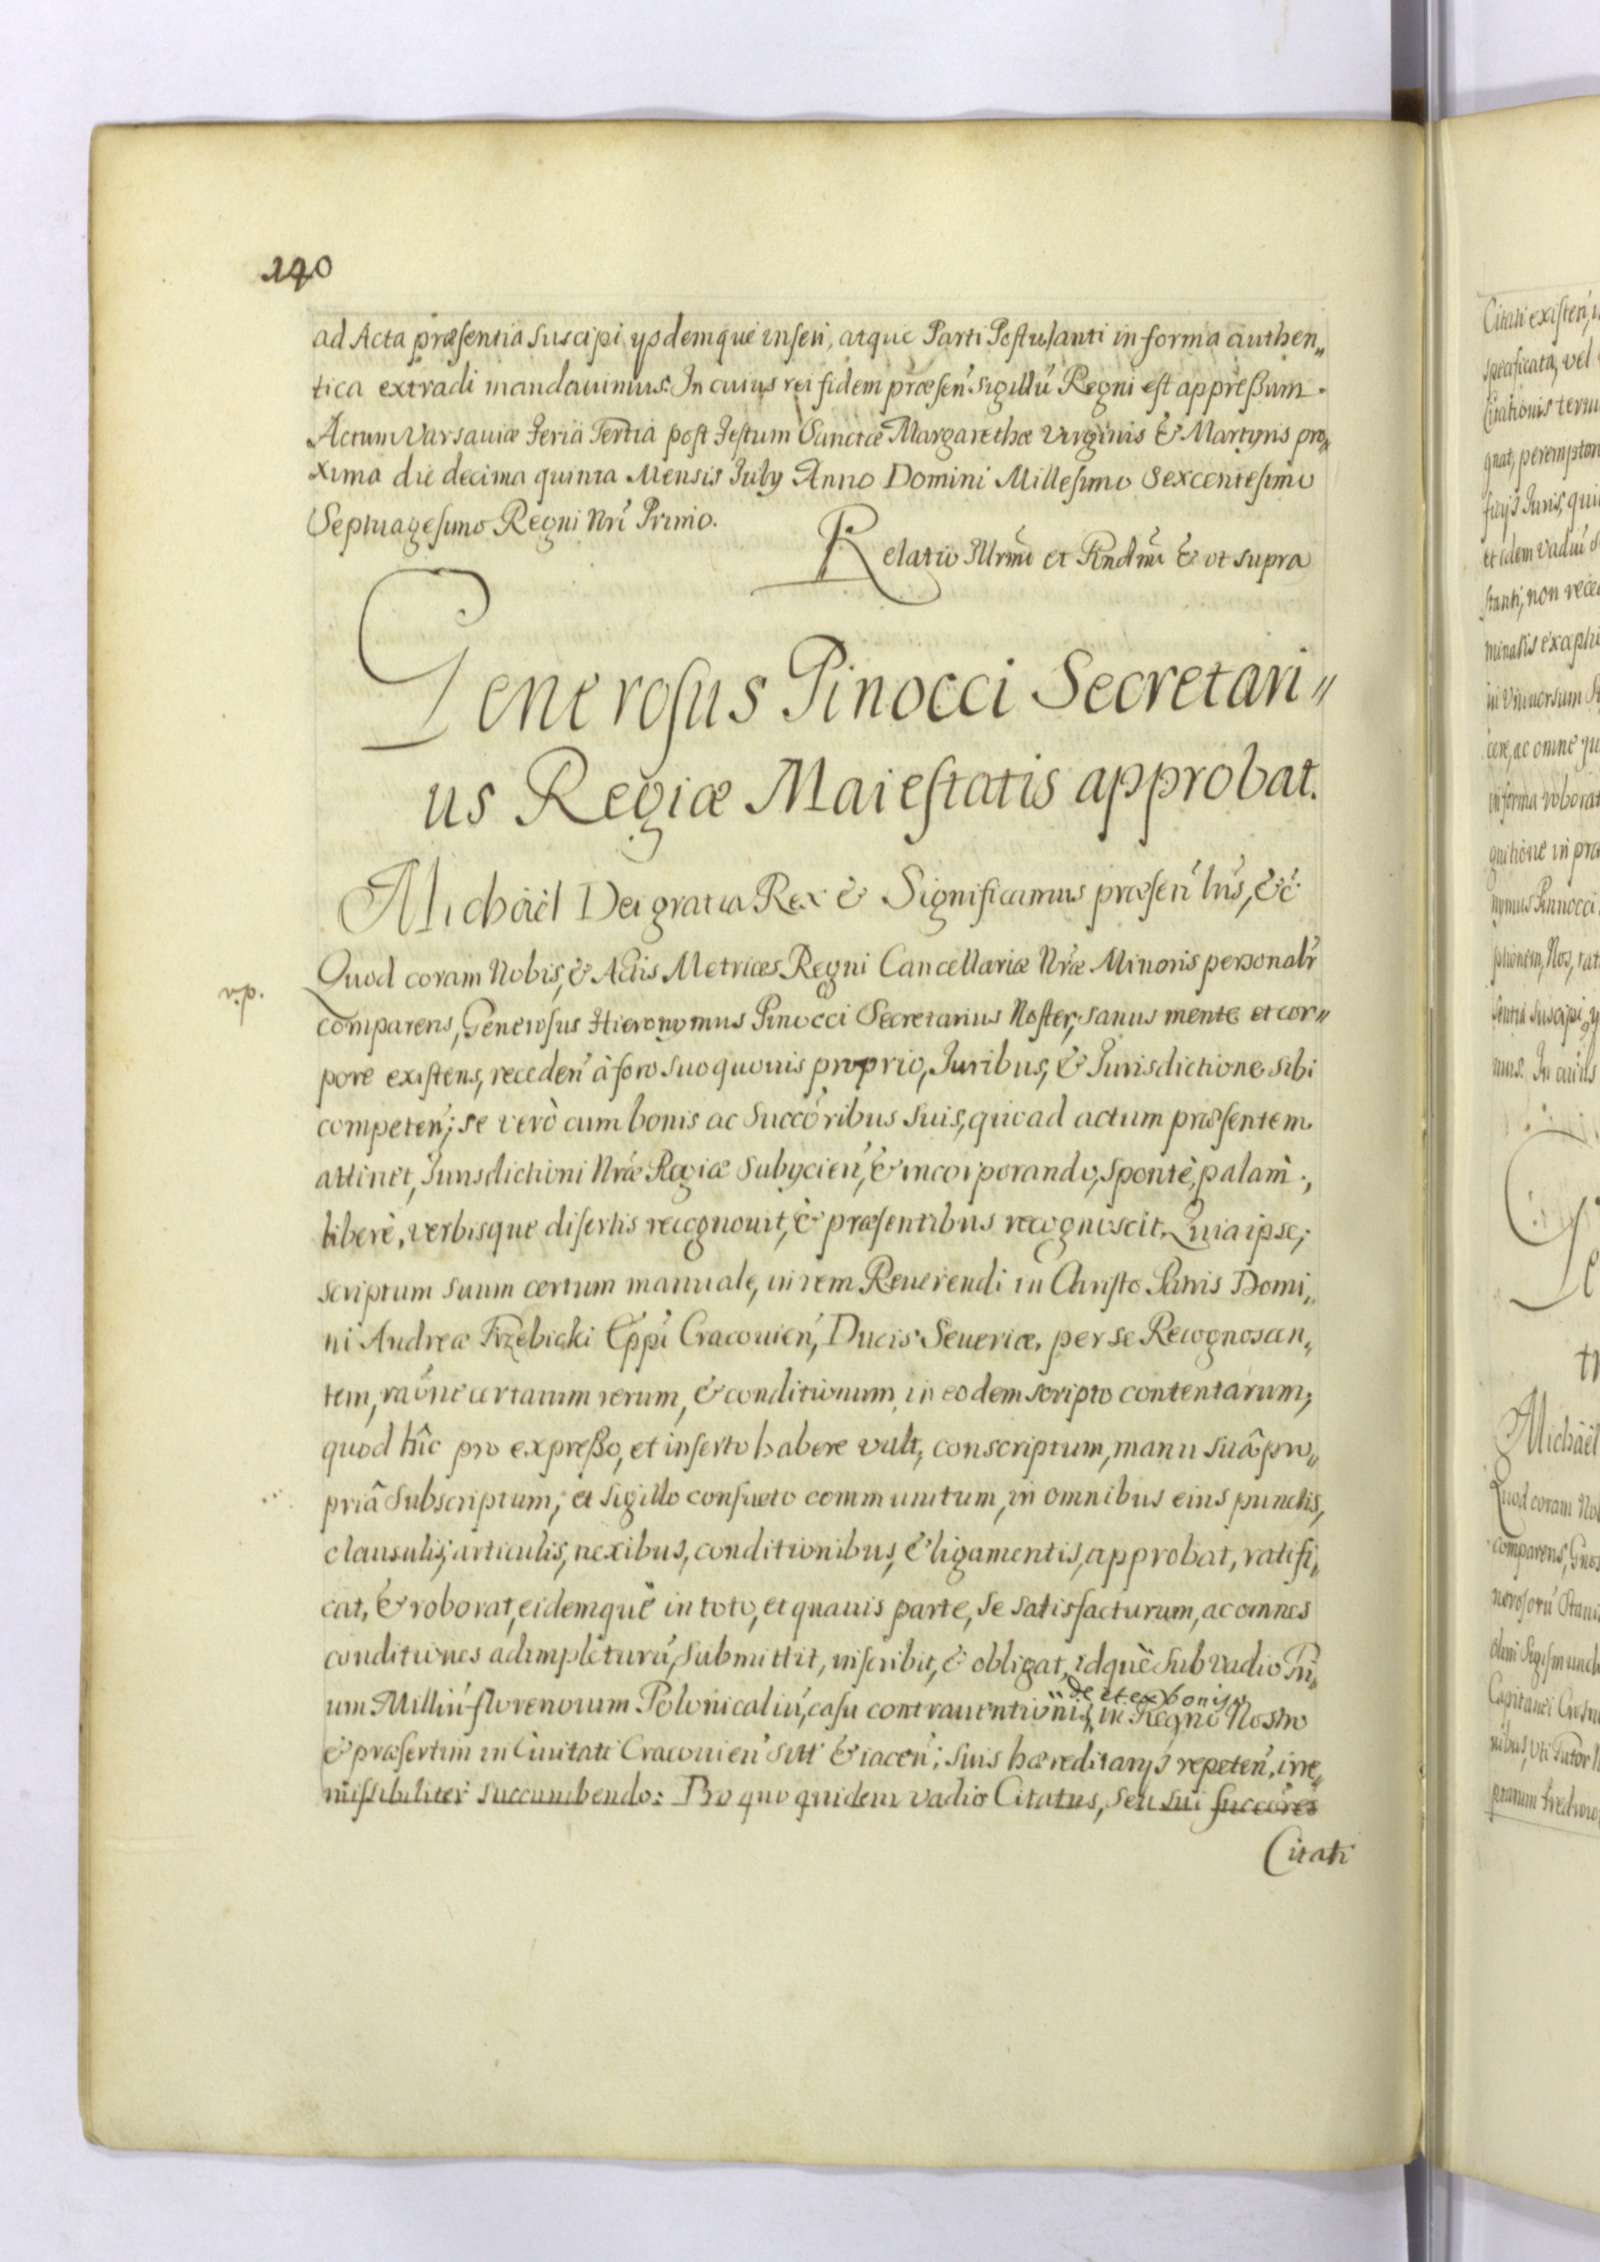 190
ad Acta præsentia suscipi, ysdemque inseri, atque Parti Postulanti in forma authen„
tica extradi mandavimus. In cuius rei fidem præsen̄ sigillū Regni est appreßum.
Actum Varsaviæ Feria Tertia post Festum Sanctæ Margarethæ Virginis & Martyris pro„
xima die decima quinta Mensis July Anno Domini Millesimo Sexcentesimo
Septuagesimo Regni Nrī Primo.
Relatio Illrmī et Rndmī & ut supra
Generosus Pinocci Secretari„
us Regiæ Maiestatis approbat.
Michaël Dei gratia Rex & Significamus præsen̄ lrīs, &c̄
Quod coram Nobis, & Actis Metrices Regni Cancellariæ Nræ Minoris personalr̄
r.p.
comparens, Generosus Hieronymus Pinocci Secretarius Noster, sanus mente et cor„
pore existens, receden̄ à foro suo quovis proprio, Iuribus, & Iurisdictione sibi
competen̄; se verò cum bonis ac succōribus suis, quoad actum præsentem
attinet, Iurisdictioni Nræ Regiæ subycien̄, & incorporando, spontè, palam,
liberè, verbisque disertis recognovit, & præsentibus recognoscit. Quia ipse,
scriptum suum certum manuale, in rem Reverendi in Christo Patris Domi„
ni Andreæ Trzebicki Epp̄i Cracovien̄, Ducis Severiæ, per se Recognoscen„
tem, raōne certarum rerum, & conditionum in eodem scripto contentarum,
quod hîc pro expreßo, et inserto habere vult, conscriptum, manu suâ pro„
priâ subscriptum, et sigillo consueto communitum, in omnibus eius punctis,
clausulis, articulis, nexibus, conditionibus, & ligamentis, approbat, ratifi„
cat, & roborat, eidemquè in toto, et quavis parte, se satisfacturum, ac omnes
conditiones adimpleturū, submittit, inscribit, & obligat, idquè sub vadio Tri„
um Milliū florenorum Polonicaliū, casu contraventionis, de et ex bonis in Regno Nostro
& præsertim in Civitate Cracovien̄ sitī & iacen̄; suis hæreditarys repeten̄, irre„
missibiliter succumbendo: Pro quo quidem vadio Citatus, seu sui succōres
Citati